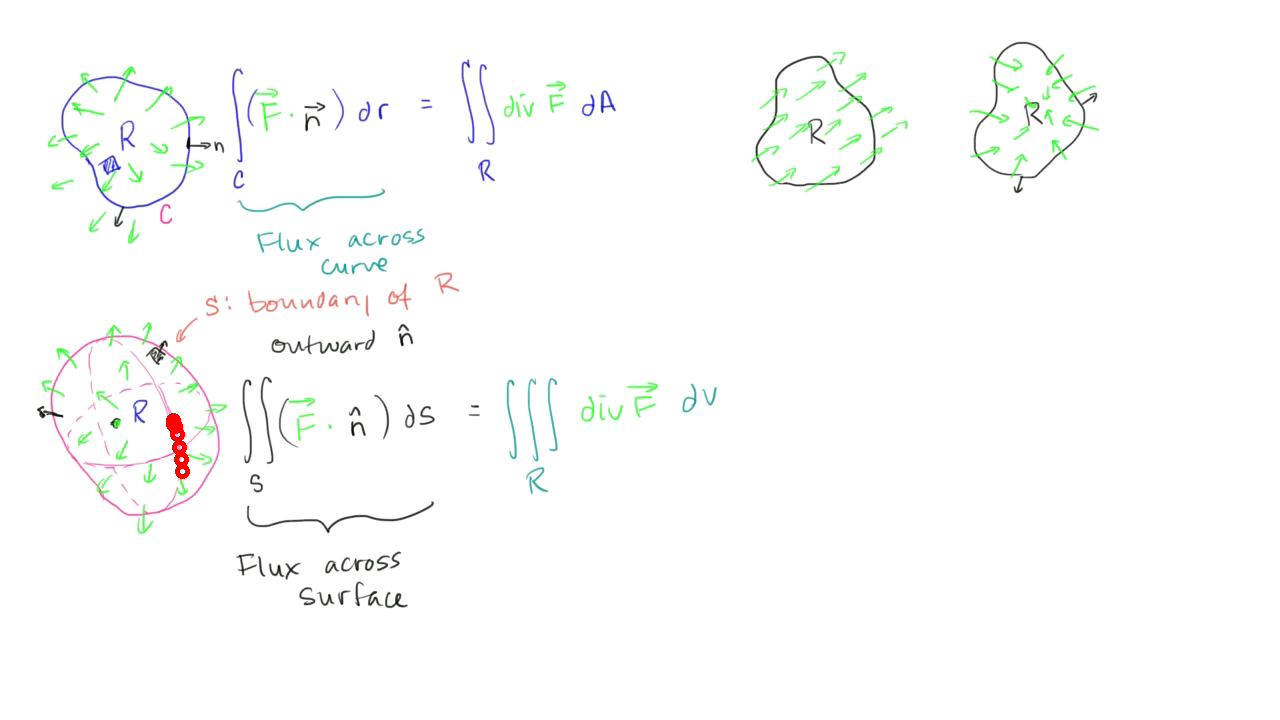 R
n
C
∫_C (F⃗ · n⃗) dr = ∬_R div F⃗ dA
Flux across
curve
R
R
S: boundary of R
outward n̂
R
∬_S (F⃗ · n̂) dS = ∭_R div F⃗ dV
Flux across
surface